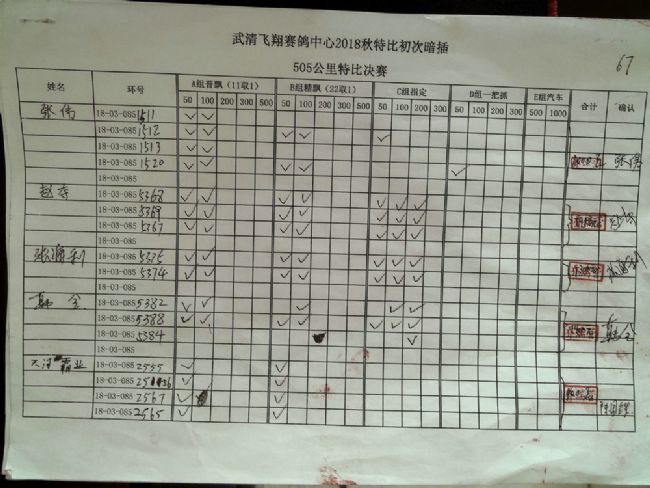 武清飞翔赛鸽中心2018秋特比初次暗插
505公里特比决赛
67
姓名 环号 A组普飘（11取1） B组精飘（22取1） C组指定 D组一把抓 E组汽车 合计 确认
50 100 200 300 500 50 100 200 300 500 50 100 200 300 50 100 200 300 500 1000
张伟 18-03-0851511 ✓ ✓
18-03-0851512 ✓ ✓ ✓ ✓ ✓
18-03-0851513 ✓ ✓
18-03-0851520 ✓ ✓ ✓ ✓ ✓ 张伟
18-03-085
18-03-0855368 ✓ ✓ ✓ ✓ ✓ ✓ ✓
18-03-0855369 ✓ ✓ ✓ ✓ ✓ ✓ ✓
18-03-0855367 ✓ ✓ ✓ ✓ ✓ ✓ ✓
18-03-085
18-03-0855375 ✓ ✓ ✓ ✓ ✓ ✓ ✓
18-03-0855374 ✓ ✓ ✓ ✓ ✓ ✓ ✓
18-03-085
18-03-0855382 ✓ ✓ ✓ ✓ ✓
18-03-0855388 ✓ ✓ ✓ ✓ ✓ ✓ ✓
18-03-0855384 ✓
18-03-085
霸业 18-03-0852555 ✓ ✓
18-03-085 ✓ ✓
18-03-0852567 ✓ ✓
18-03-0852565 ✓ ✓